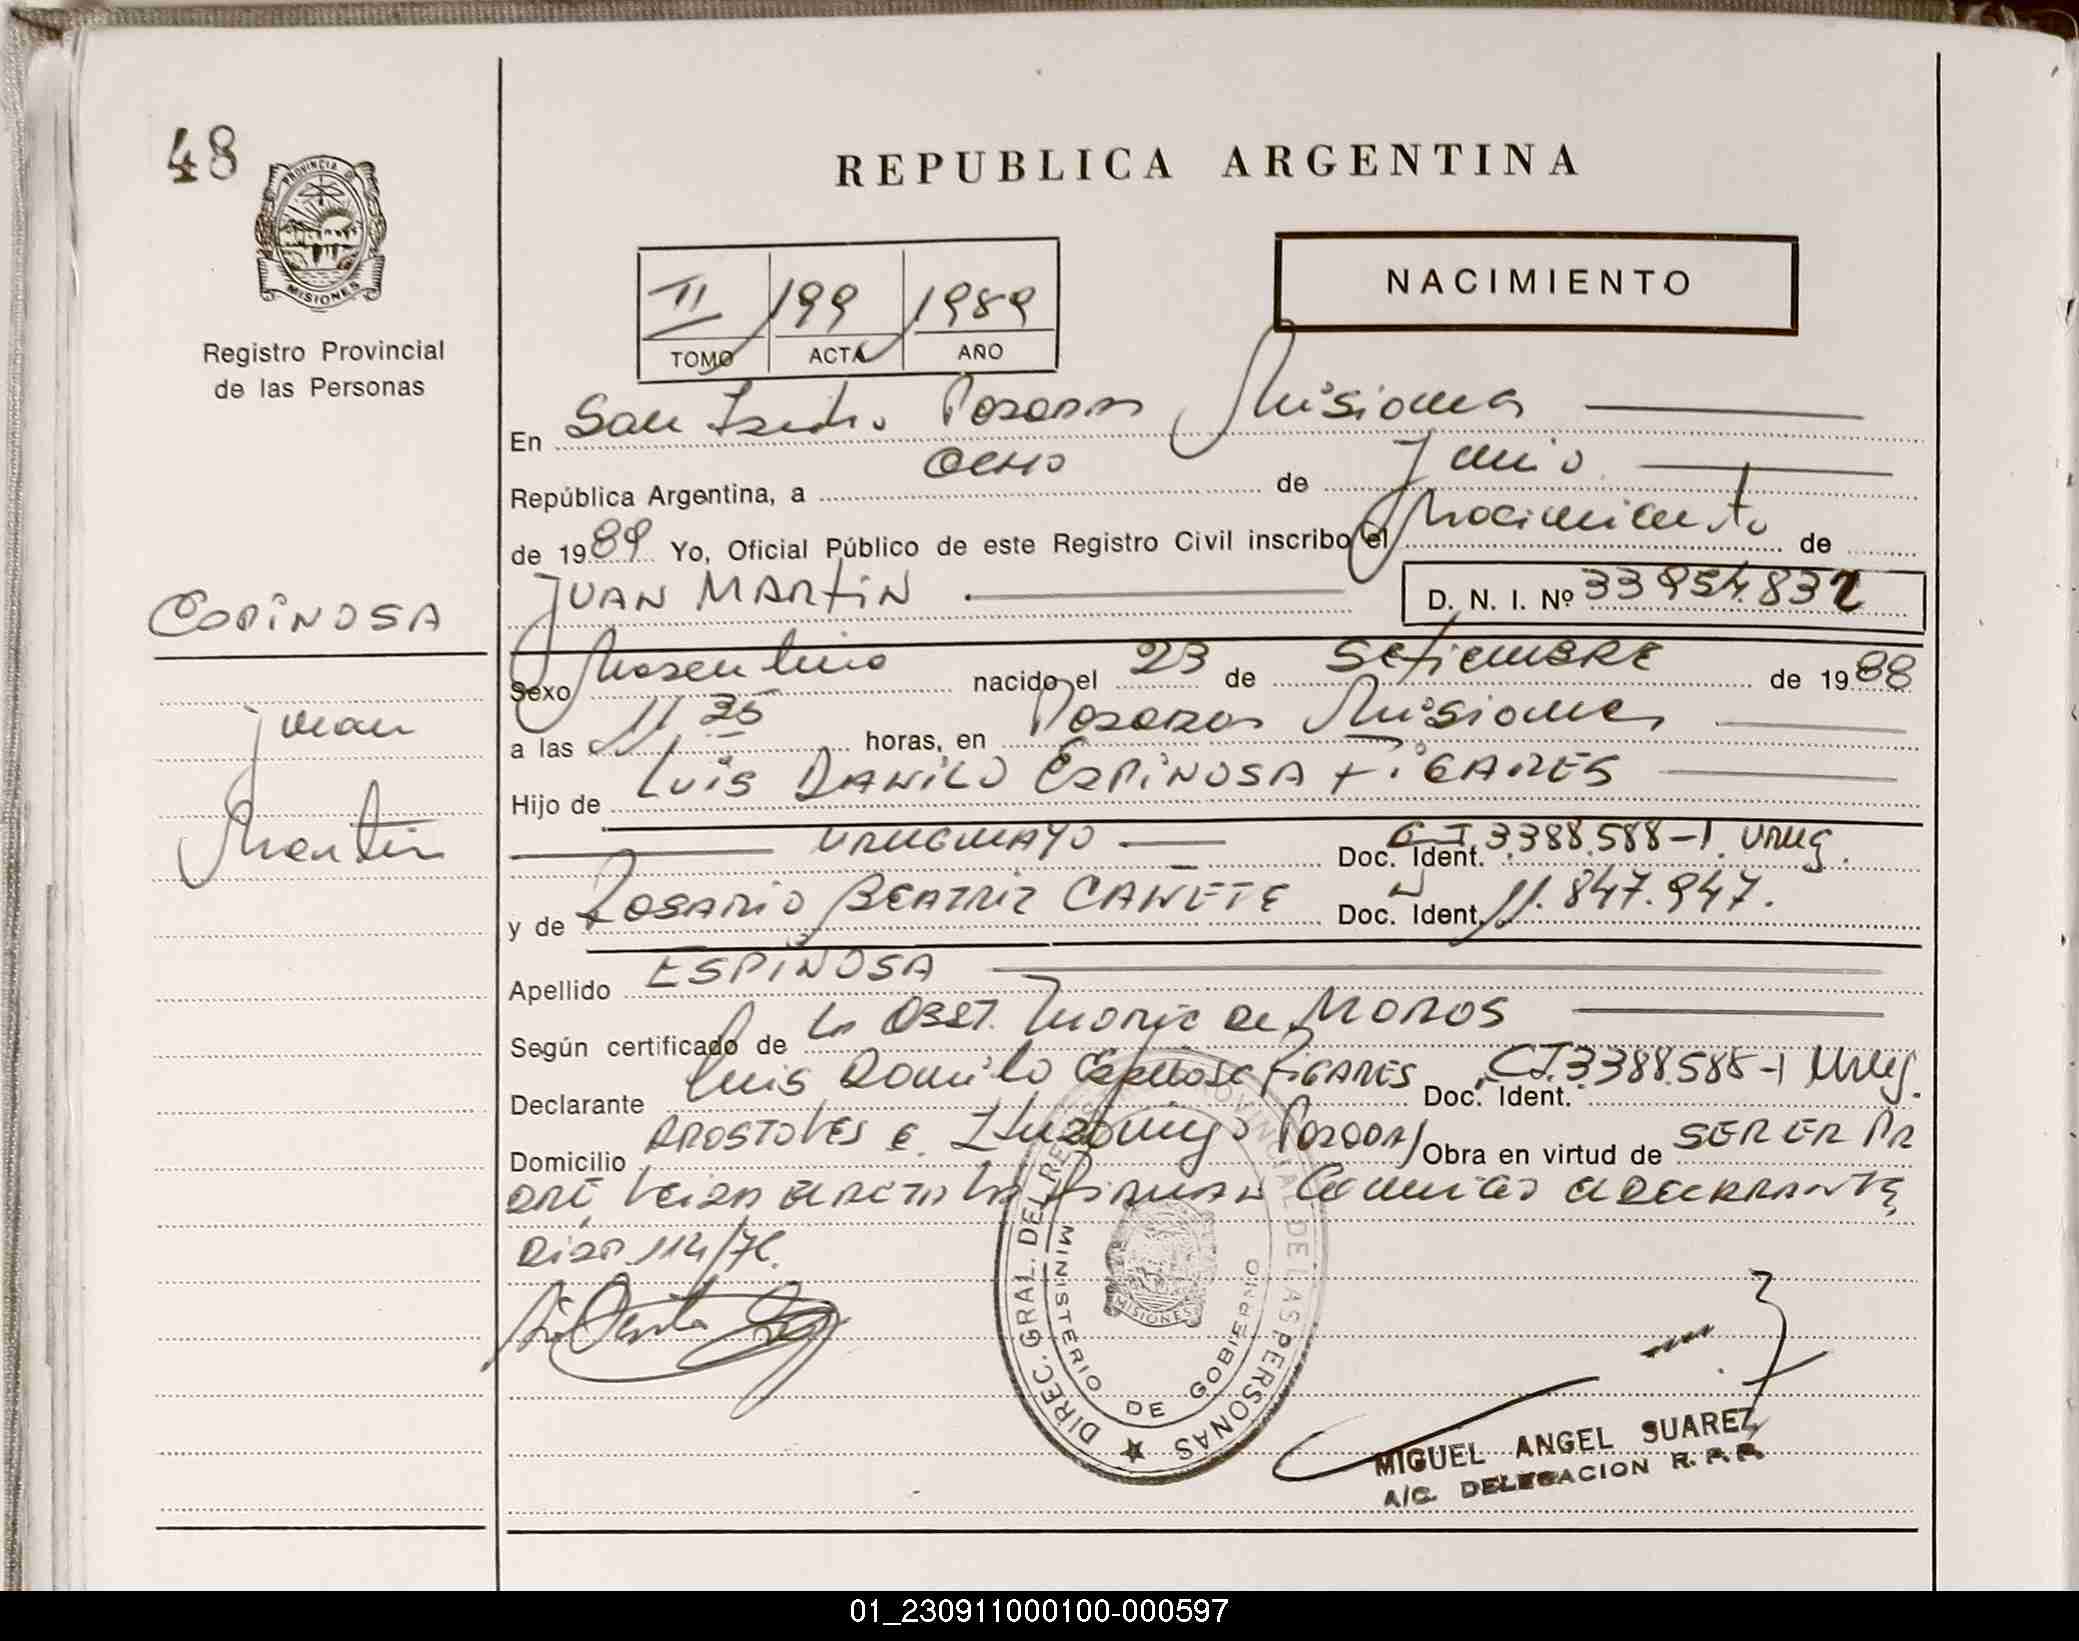 48
PROVINCIA DE
MISIONES
Registro Provincial
de las Personas
REPUBLICA ARGENTINA
NACIMIENTO
II 199 1989
TOMO ACTA AÑO
En San Isidro Posadas Misiones
República Argentina, a Ocho de Junio
de 1989 Yo, Oficial Público de este Registro Civil inscribo el Nacimiento de
JUAN MARTIN D. N. I. Nº 33954.832
ESPINOSA
Juan
Martin
Sexo Masculino nacido el 23 de SETIEMBRE de 1988
a las 11 35 horas, en Posadas Misiones
Hijo de LUIS DANILO ESPINOSA FIGARES
URUGUAYO Doc. Ident. CI 3388.588-1. URUG.
y de ROSARIO BEATRIZ CAÑETE Doc. Ident. 11.847.947.
Apellido ESPINOSA
Según certificado de La OBST. de MOROS
Declarante Luis Danilo Espinosa FIGARES Doc. Ident. CI.3388.588-1 Urug.
Domicilio APOSTOLES e Ituzaingo Posadas Obra en virtud de SER EL PA
DRE, Leida el acta la firman conmigo el DECLARANTE
DISP. 114/76.
DIREC. GRAL. DEL REGISTRO PROVINCIAL DE LAS PERSONAS
MINISTERIO DE GOBIERNO
MISIONES
MIGUEL ANGEL SUAREZ
A/C. DELEGACION R. P. P.
01_230911000100-000597